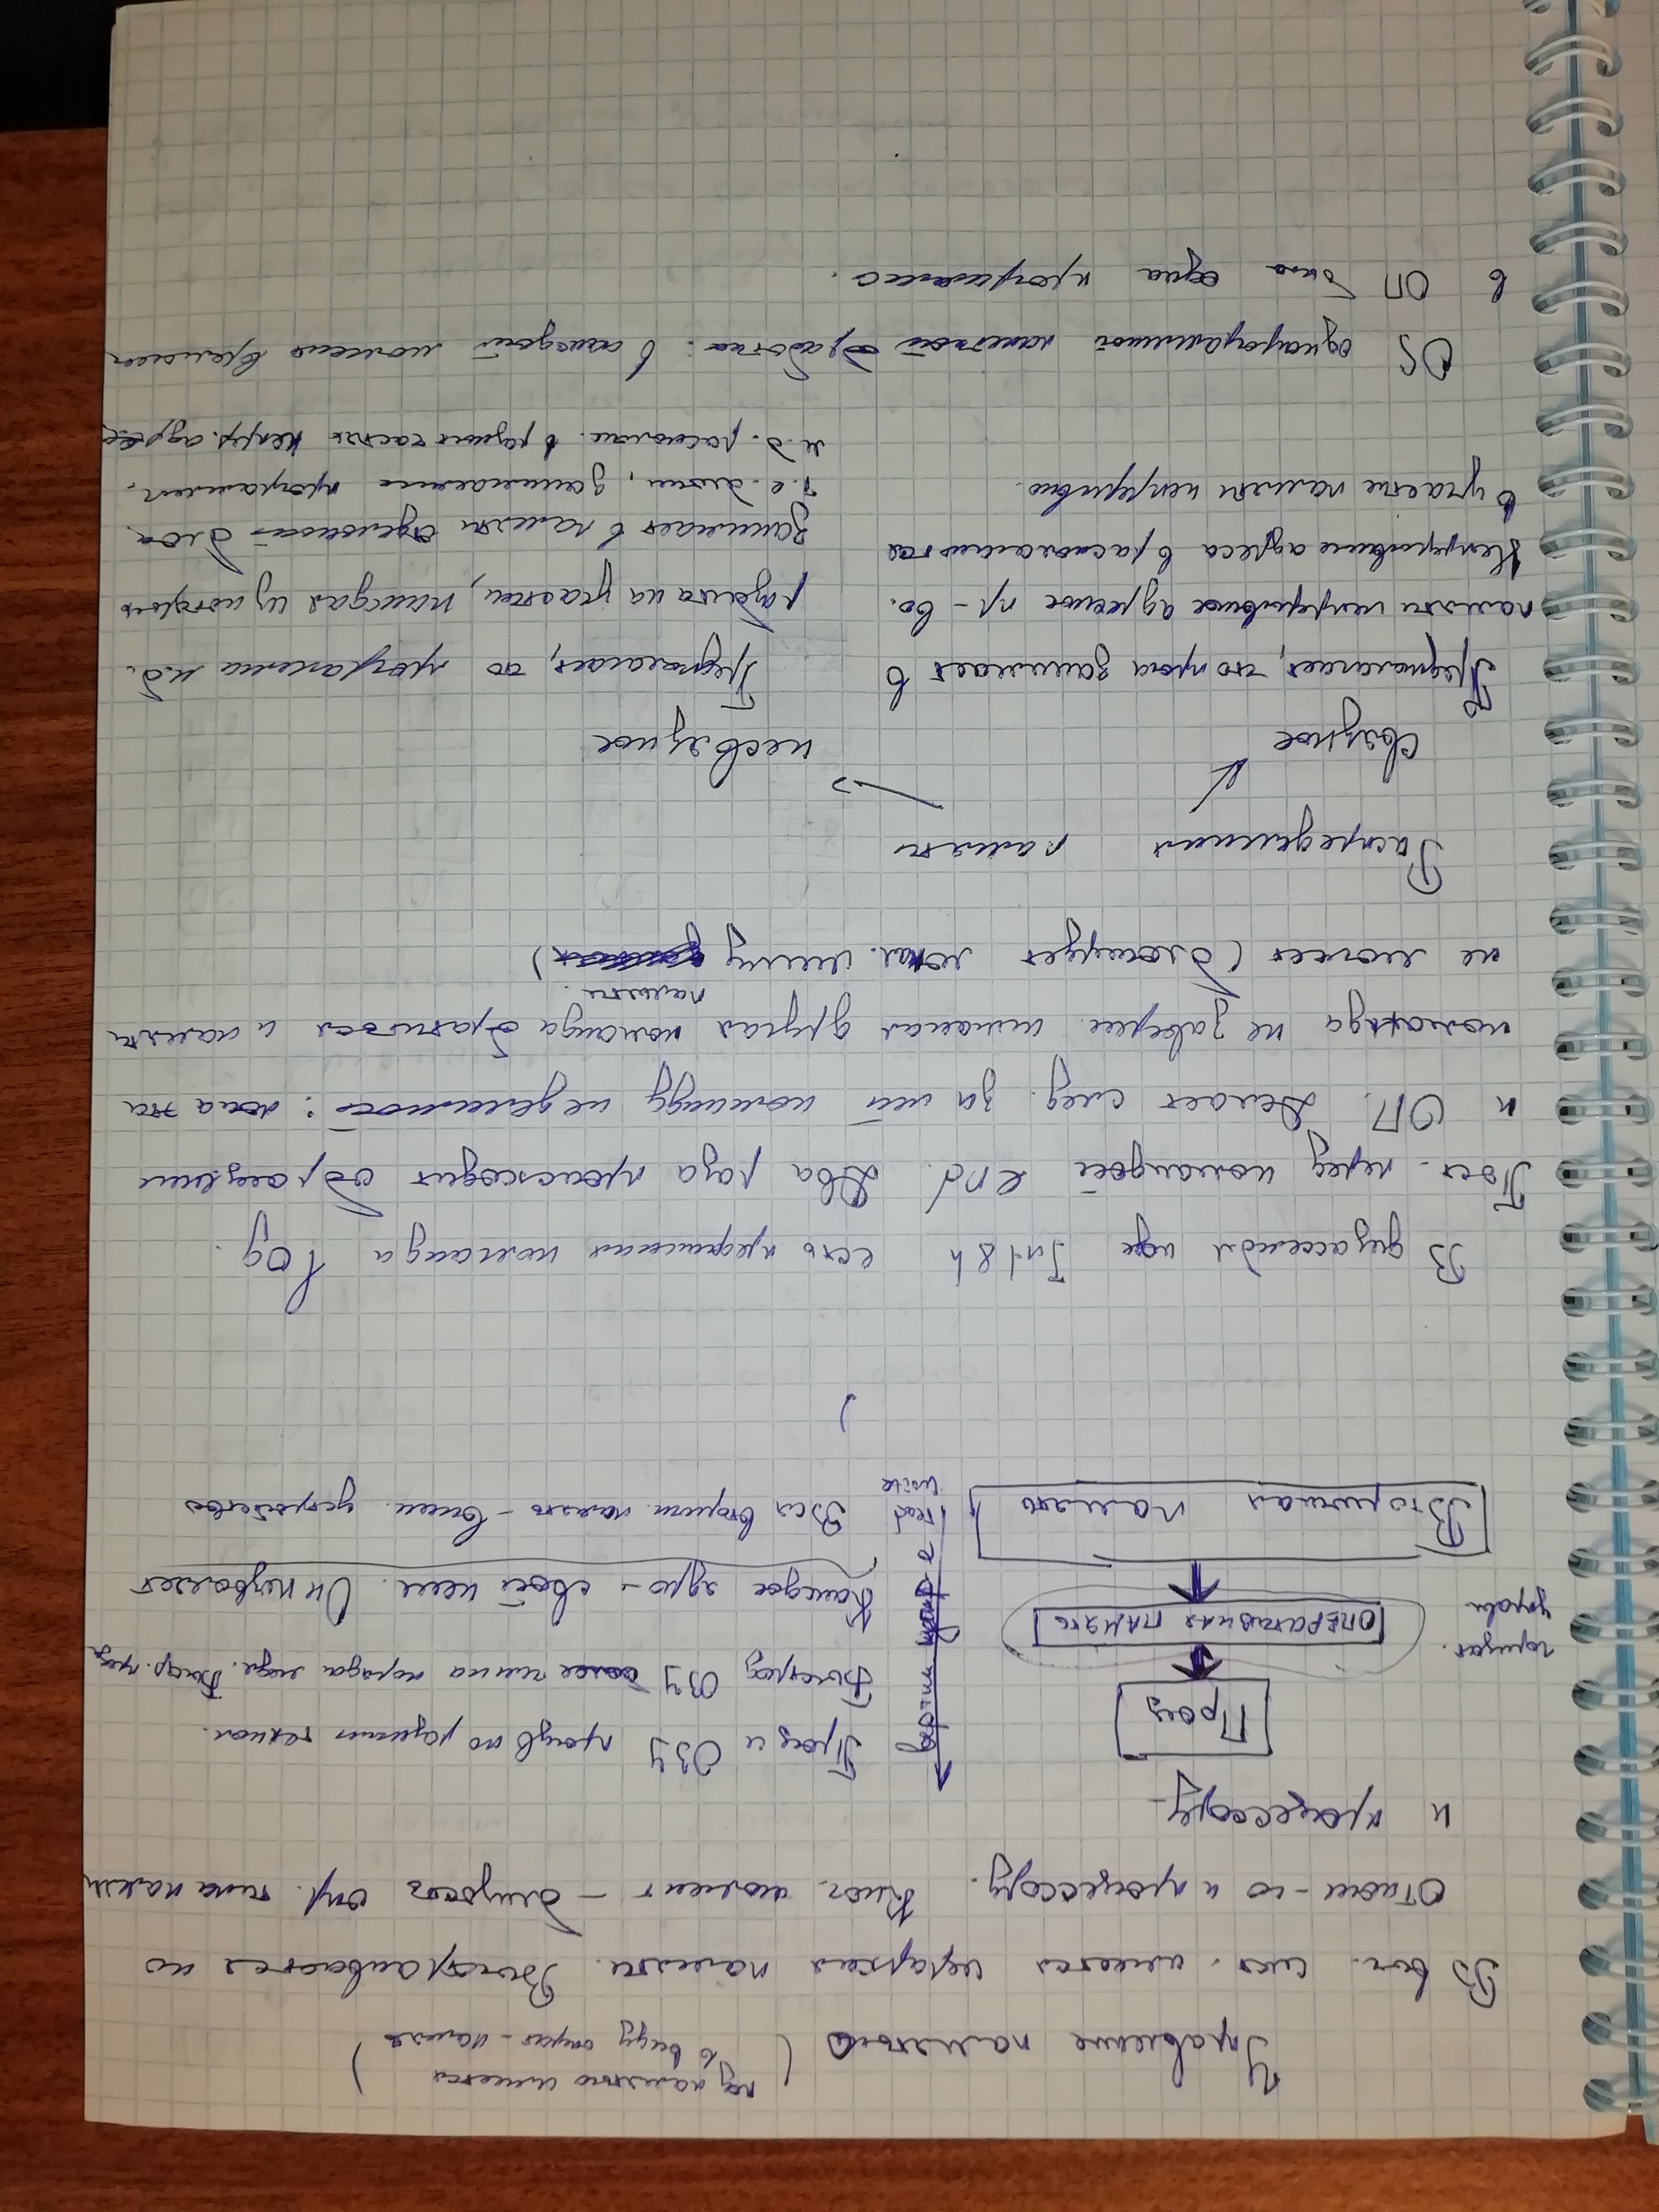 Управление памятью (под памятью имеется
в виду операт. память)
В выч. сист. имеется иерархия памяти. Выстраивается по
отнош-ю к процессору. Ключ. момент – близость опр. типа памяти
к процессору.
Проц
ОПЕРАТИВНАЯ ПАМЯТЬ
Вторичная память
горизонт.
управл
read
write
Проц и ОЗУ произв по разным технол.
Быстрод ОЗУ более чем на порядок медл. Быстр. проца
Каждое ядро – свой кеш. Он позволяет
Вся вторичн. память – внеш. устройство
В дизассембл коде Int 8h есть префиксная команда lод.
Пост. перед командой end. Два раза происходит обращение
к ОП. Делает след. за ней команду неделимой: пока эта
команда не заверш. никакая другая команда обратиться к памяти
не может (блокирует локал. шину памяти.)
Распределения памяти
связное
несвязное
Предполагает, что прога занимает в
памяти непрерывное адресное пр-во.
Непрерывные адреса в располагаются
в участке памяти непрерывно.
Предполагает, что программа м.б.
разбита на участки, каждая из которых
занимает в памяти отдельный блок
т.е. блоки, занимаемые программой,
м.б. располож. в разных частях непрер. адрес
OS однопрограммной пакетной обработки: в каждый момент времени
в ОП была одна программа.